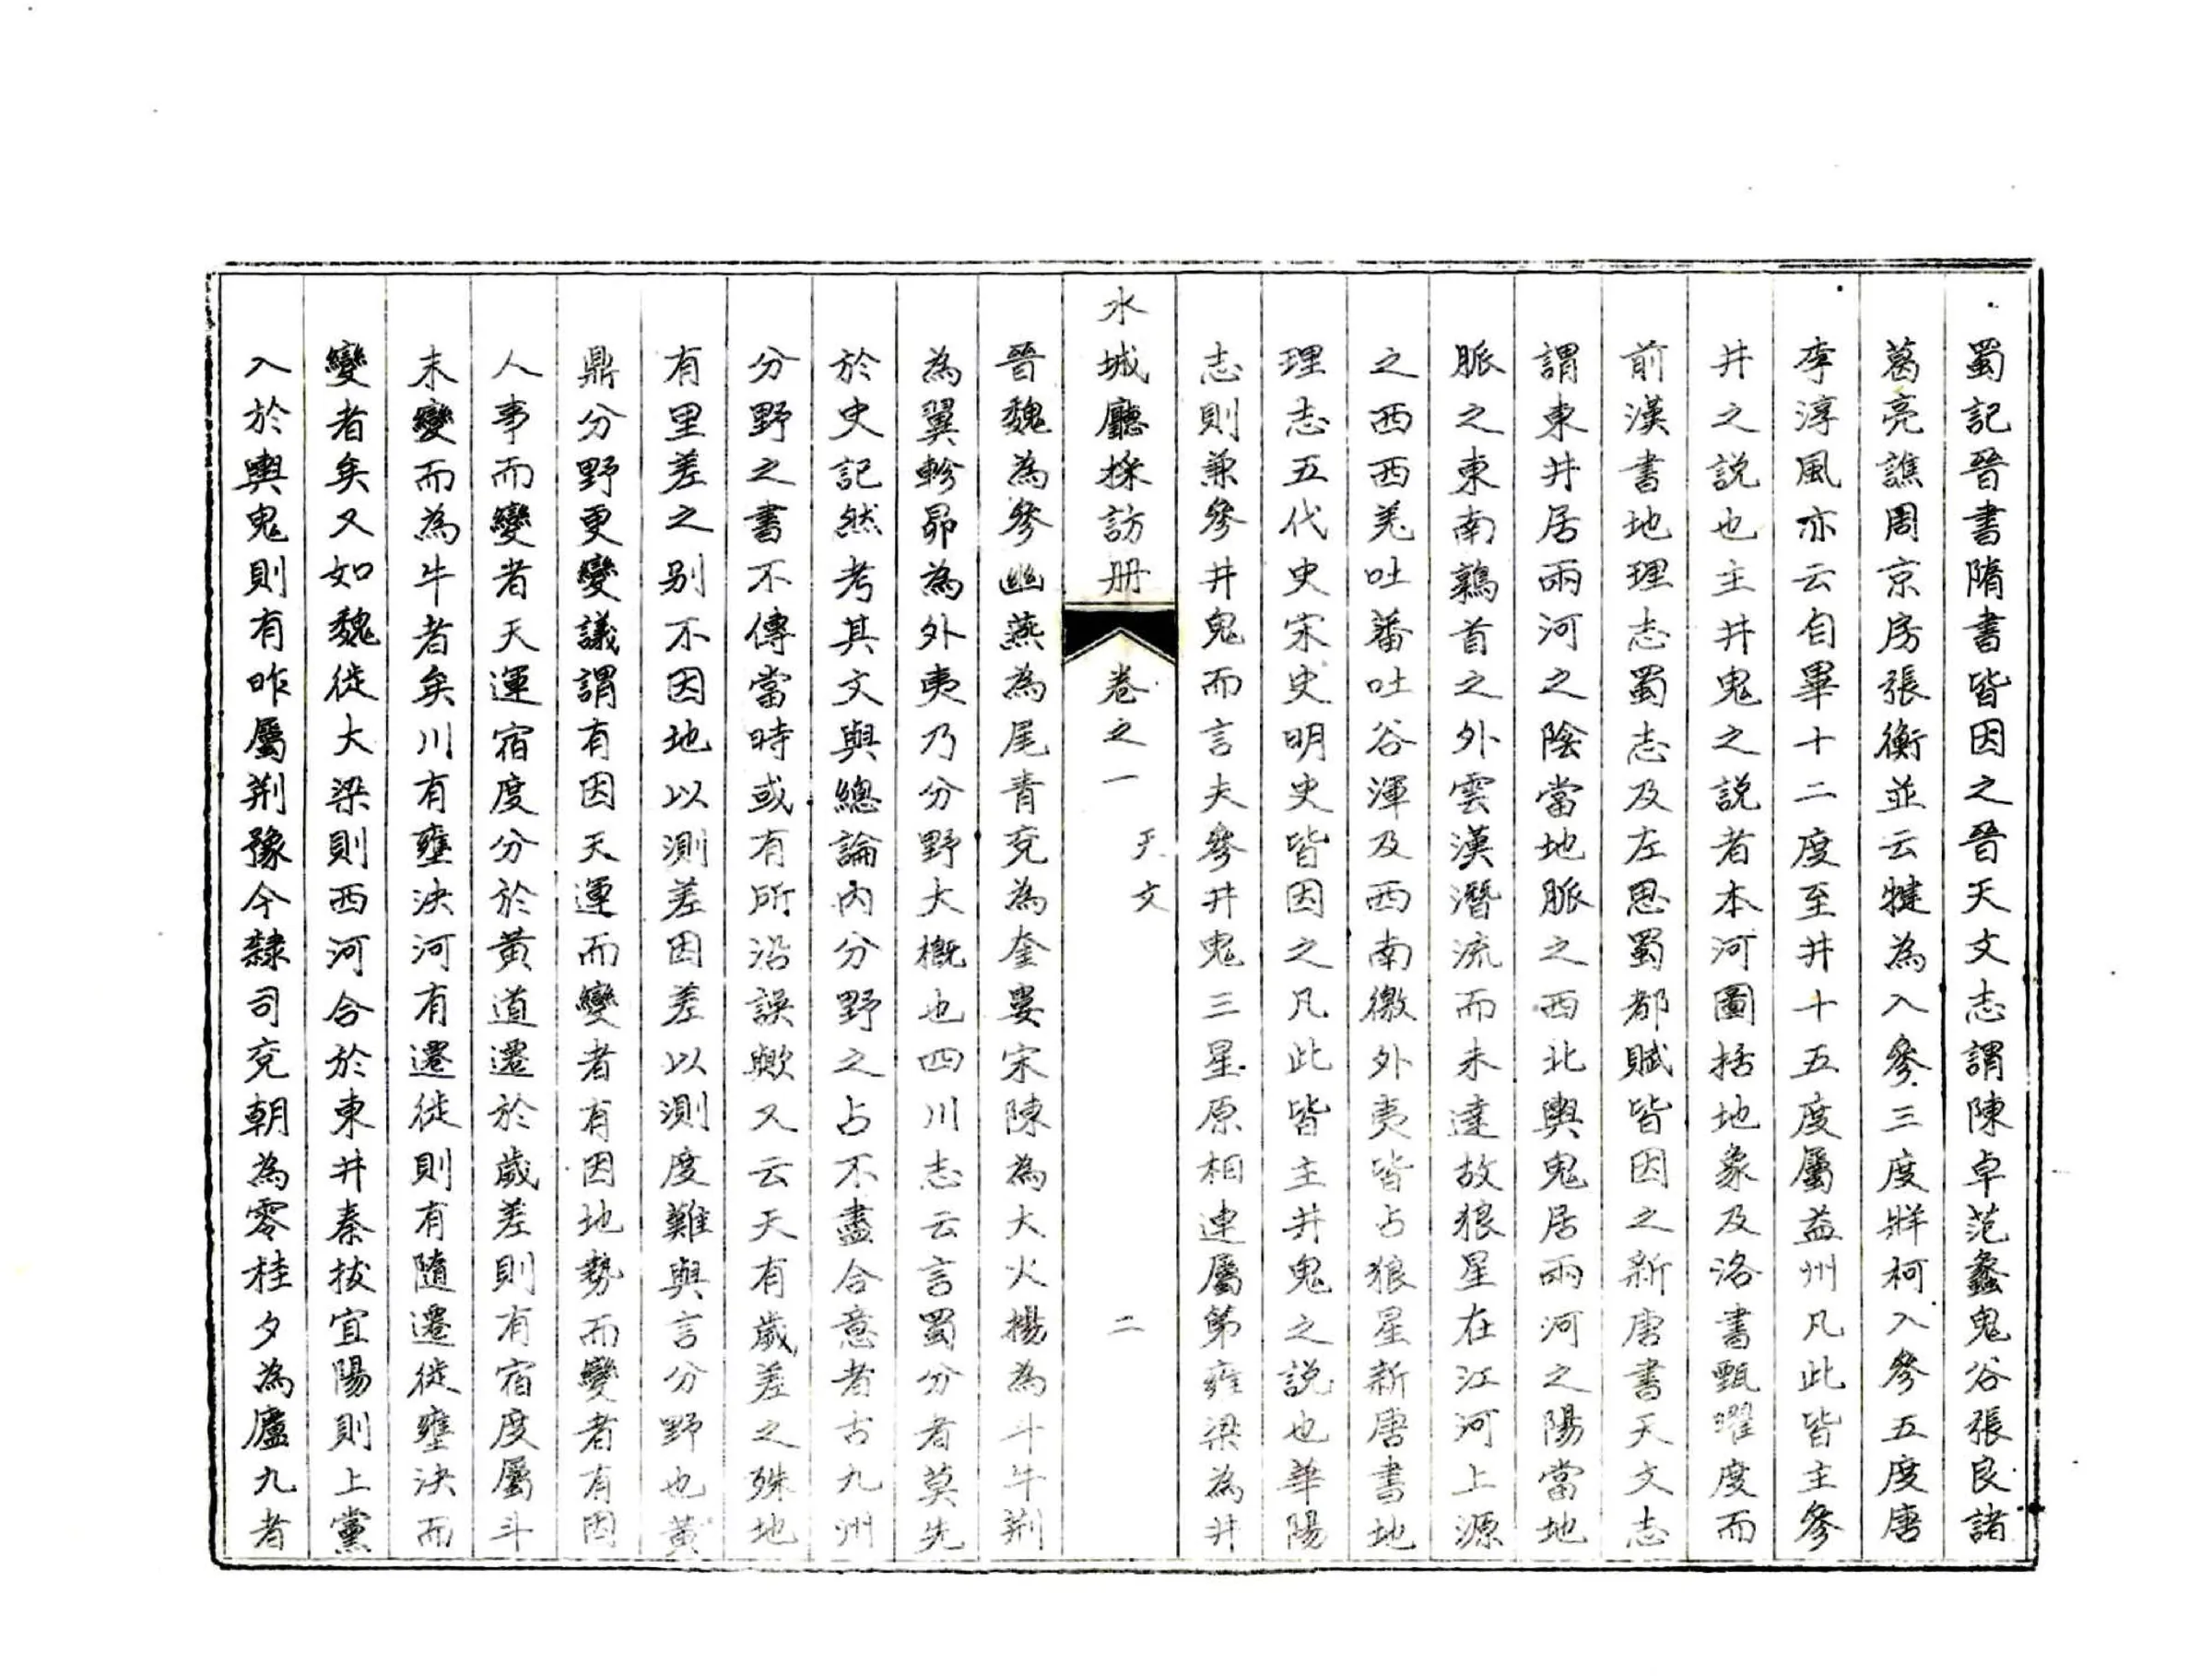 蜀記晉書隋書皆因之晉天文志謂陳卓范蠡鬼谷張良諸
葛亮譙周京房張衡並云犍為入參三度牂柯入參五度唐
李淳風亦云自畢十二度至井十五度屬益州凡此皆主參
井之説也主井鬼之説者本河圖括地象及洛書甄曜度而
前漢書地理志蜀志及左思蜀都賦皆因之新唐書天文志
謂東井居兩河之陰當地脈之西北輿鬼居兩河之陽當地
脈之東南鶉首之外雲漢潛流而未達故狼星在江河上源
之西西羌吐蕃吐谷渾及西南徼外夷皆占狼星新唐書地
理志五代史宋史明史皆因之凡此皆主井鬼之説也華陽
志則兼參井鬼而言夫參井鬼三星原相連屬第雍梁為井
水城廳採訪册 卷之一 天文 二
晉魏為參幽燕為尾青兗為奎婁宋陳為大火揚為斗牛荆
為翼軫昴為外夷乃分野大概也四川志云言蜀分者莫先
於史記然考其文與總論內分野之占不盡合意者古九州
分野之書不傳當時或有所沿誤歟又云天有歲差之殊地
有里差之别不因地以測差因差以測度難與言分野也黃
鼎分野更變議謂有因天運而變者有因地勢而變者有因
人事而變者天運宿度分於黃道遷於歲差則有宿度屬斗
末變而為牛者矣川有壅決河有遷徙則有隨遷徙壅決而
變者矣又如魏徙大梁則西河合於東井秦拔宜陽則上黨
入於輿鬼則有昨屬荆豫今隸司兗朝為零桂夕為廬九者